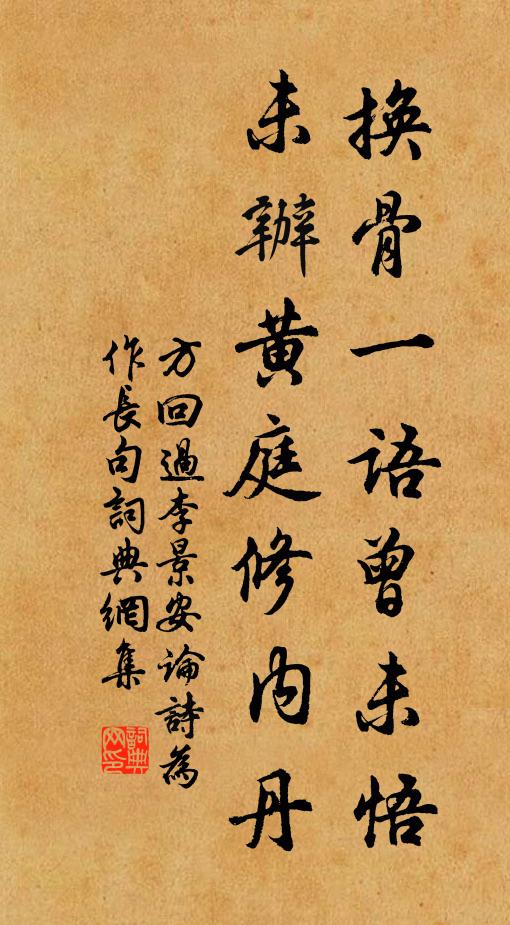 換骨一語曾未悟
未辦黃庭修內丹
方回過李景安論詩為
作長句詞典網集
詞典
网印